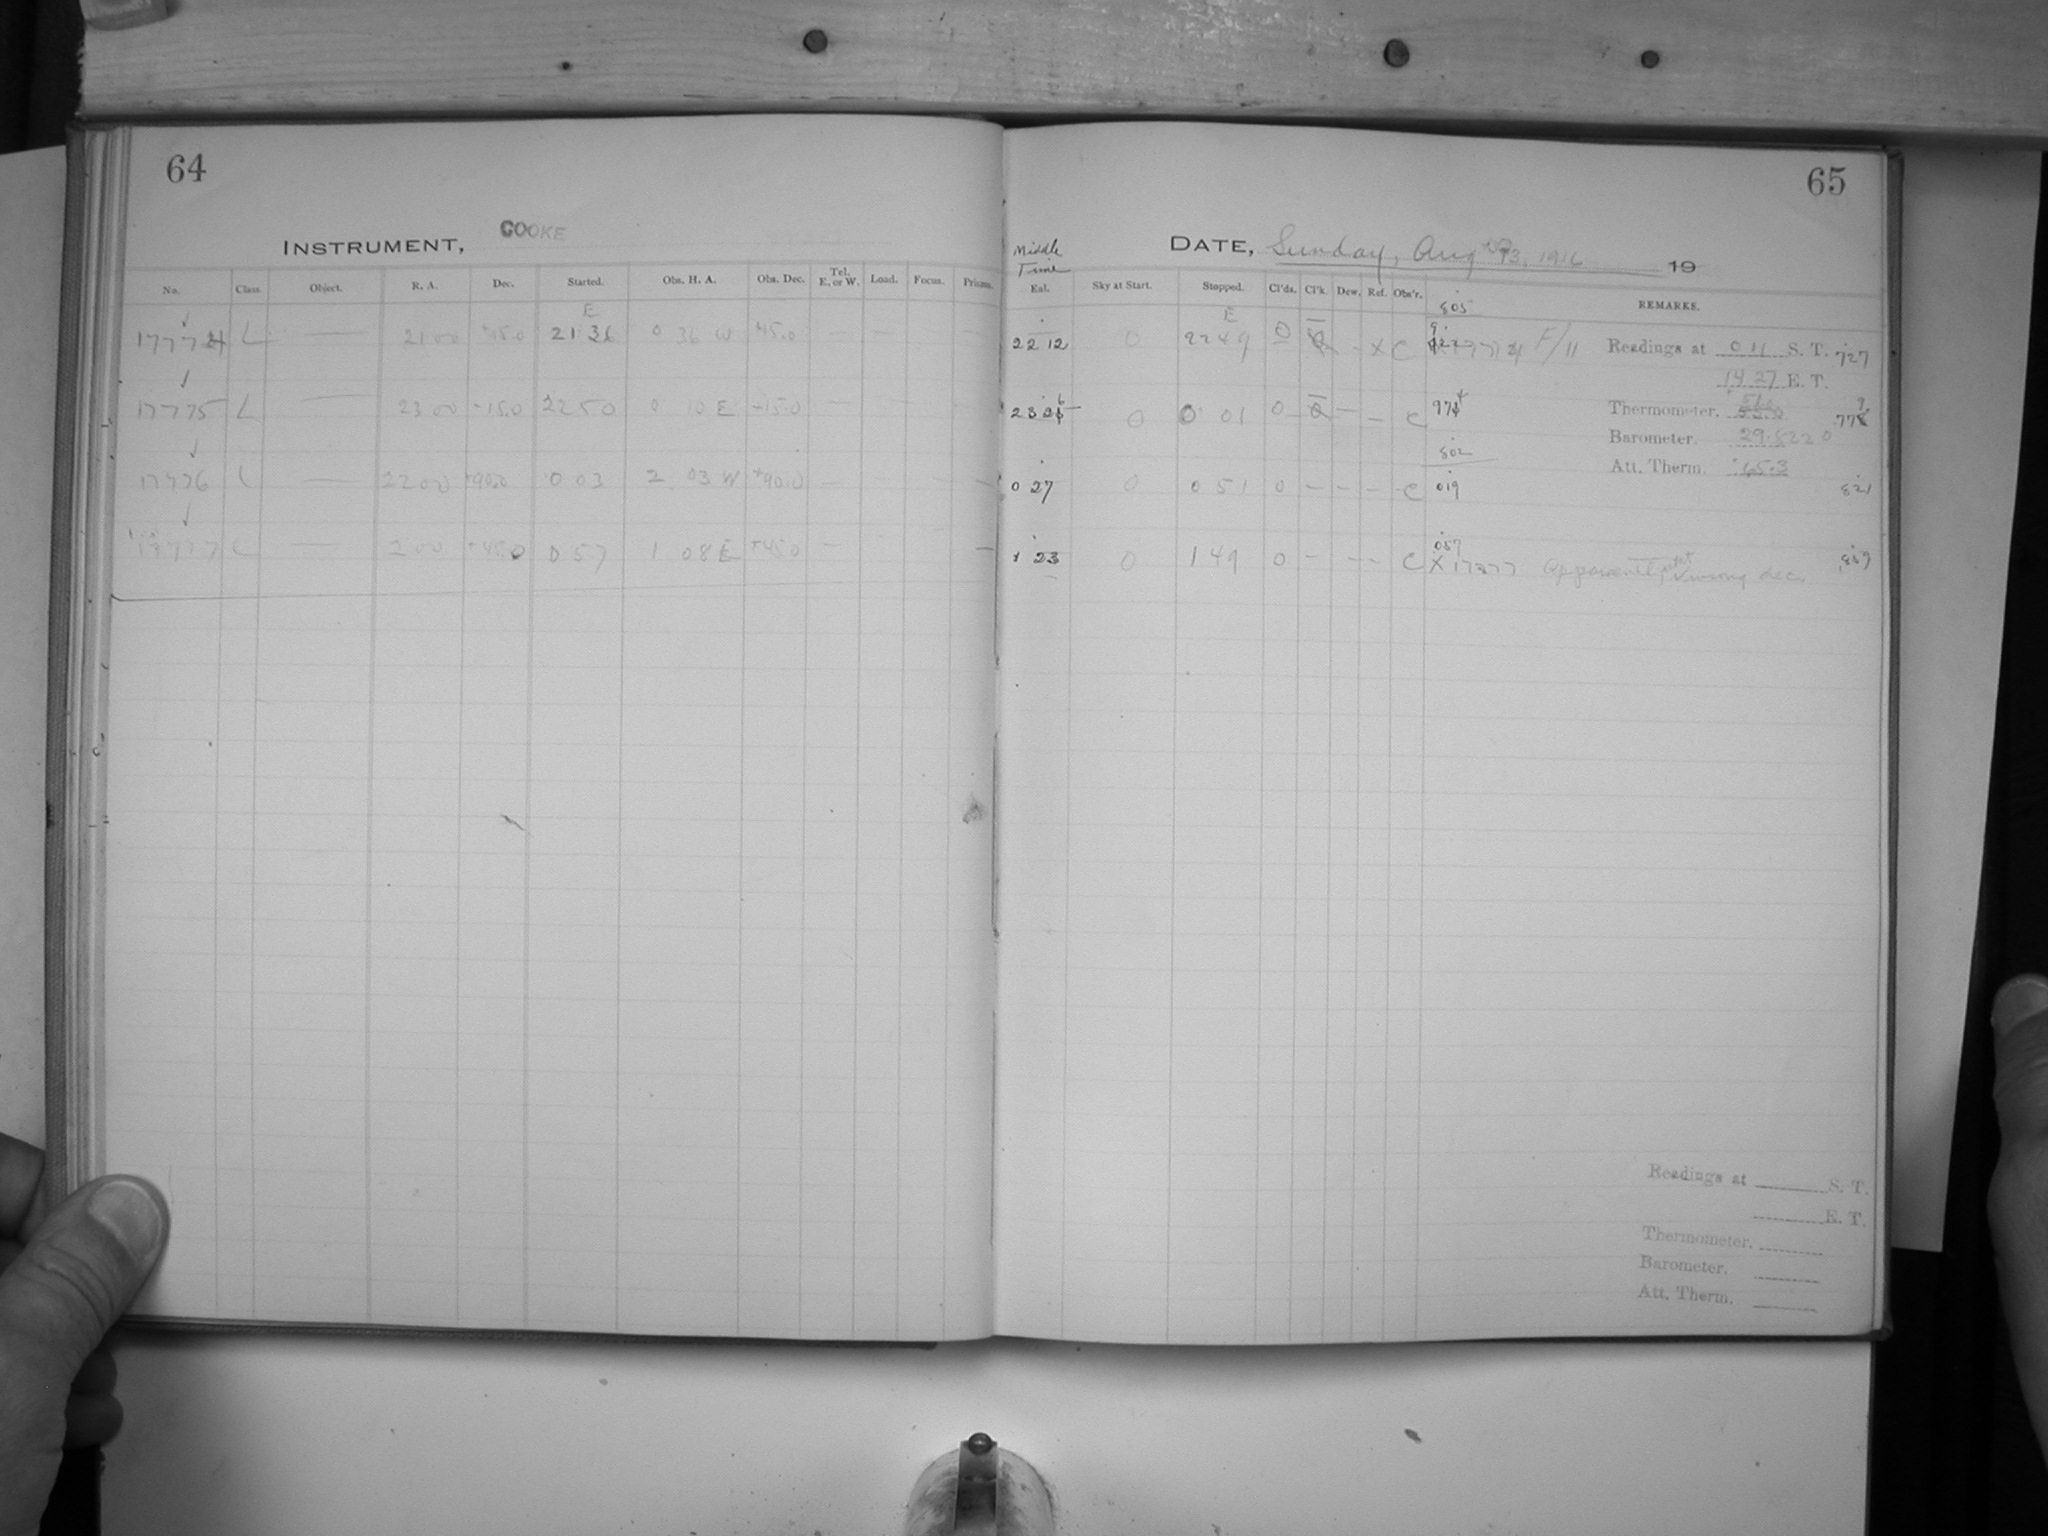 64
INSTRUMENT, COOKE
No. Class. Object. R. A. Dec. Started. Obs. H. A. Obs. Dec. Tel. E. or W. Load. Focus. Prisms.
E
17774 L — 21 00 +45.0 21 36 0 36 W +45.0 — —
17775 L — 23 00 -15.0 22 50 0 10 E -15.0 — —
17776 L — 22 00 +90.0 0 03 2 03 W +90.0 — —
17777 L — 2 00 +45.0 0 57 1 08 E +45.0 — —
65
Middle Time
DATE, Sunday, Aug 13, 1916 19
Eal. Sky at Start. Stopped. Cl'ds. Cl'k. Dew. Ref. Obs'r. REMARKS.
805
E
22 12 0 22 49 0 - X C 17774 F/11
Readings at 0 11 S. T. 727
14 27 E. T.
23 26 0 0 01 0 — — C 974
Thermometer.
Barometer. 29.822
802
Att. Therm. 65.3
0 27 0 0 51 0 — — — C 019 821
057
1 23 0 1 49 0 — — — C X 17777 Apparently at wrong dec. 859
Readings at S. T.
E. T.
Thermometer.
Barometer.
Att. Therm.